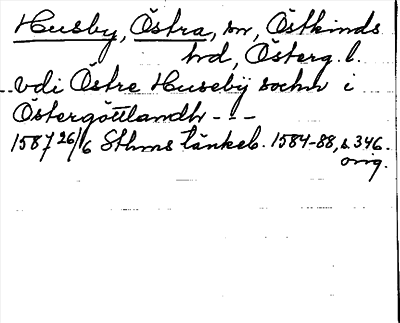 Husby, Östra, sn, Östkinds
hd, Österg. l.
vdi Östre Husebÿ sochn i
Östergöttlandh ---
1587 26/6 Sthms tänkeb. 1584-88, s 346.
orig.